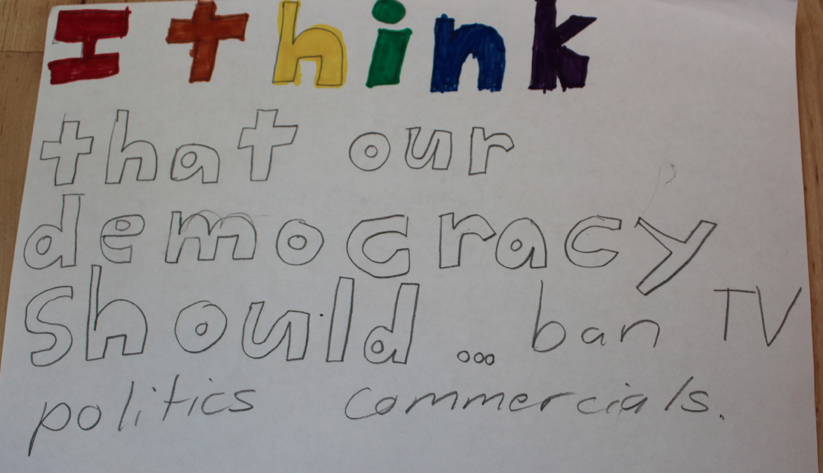 I think
that our
democracy
should ... ban TV
politics commercials.